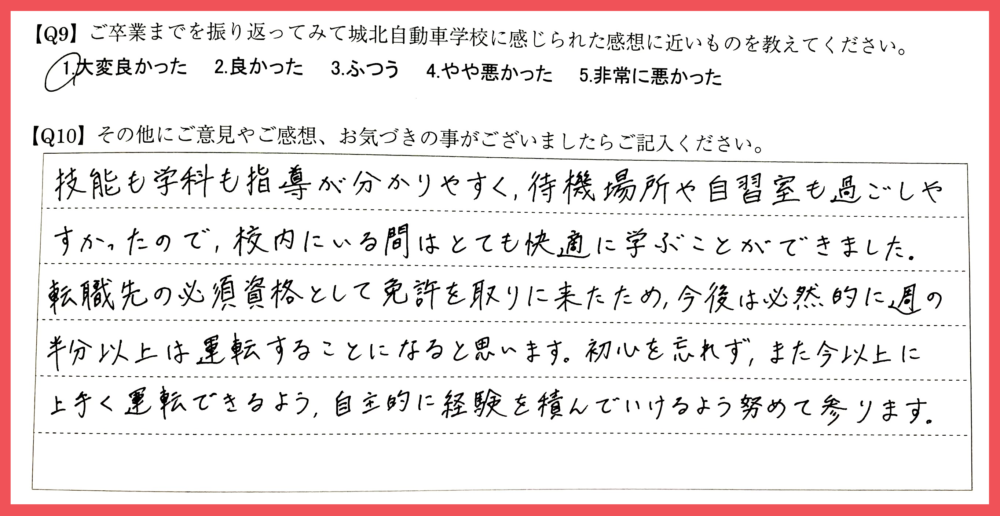 【Q9】ご卒業までを振り返ってみて城北自動車学校に感じられた感想に近いものを教えてください。
1.大変良かった 2.良かった 3.ふつう 4.やや悪かった 5.非常に悪かった
【Q10】その他にご意見やご感想、お気づきの事がございましたらご記入ください。
技能も学科も指導が分かりやすく,待機場所や自習室も過ごしや
すかったので,校内にいる間はとても快適に学ぶことができました.
転職先の必須資格として免許を取りに来たため,今後は必然的に週の
半分以上は運転することになると思います。初心を忘れず,また今以上に
上手く運転できるよう,自主的に経験を積んでいけるよう努めて参ります。